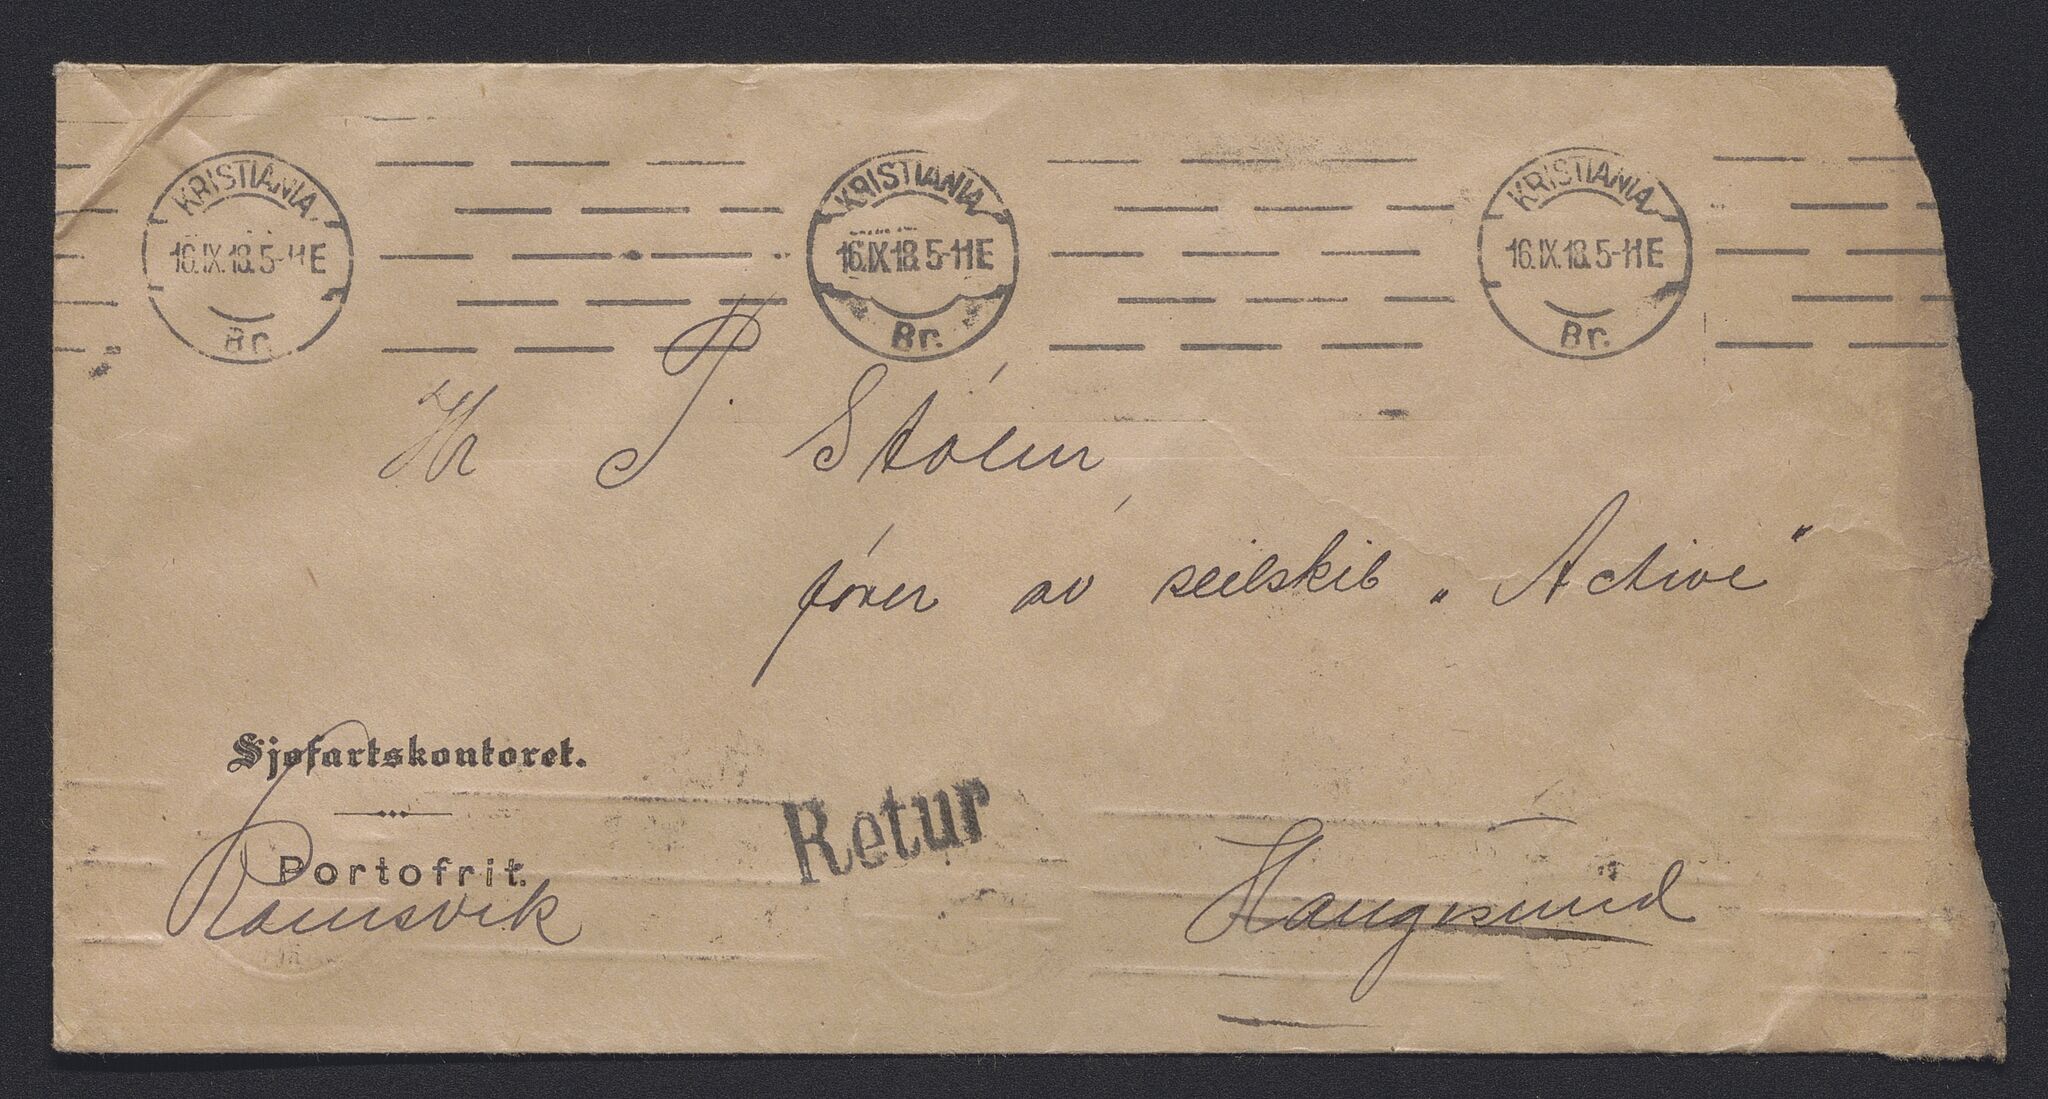 KRISTIANIA
16.IX.18.5-11E
Br.
KRISTIANIA
16.IX.18.5-11E
Br.
KRISTIANIA
16.IX.18.5-11E
Br.
Hr P. Stølen,
fører av seilskib „Active"
Sjøfartskontoret.
Portofrit.
Ramsvik
Retur
Haugesund